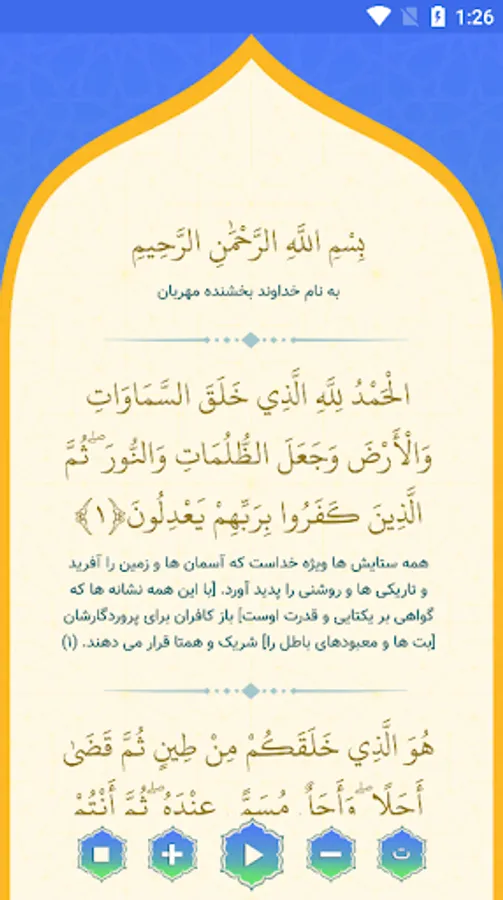 1:26
بِسْمِ اللَّهِ الرَّحْمَٰنِ الرَّحِيمِ
به نام خداوند بخشنده مهربان
الْحَمْدُ لِلَّهِ الَّذِي خَلَقَ السَّمَاوَاتِ
وَالْأَرْضَ وَجَعَلَ الظُّلُمَاتِ وَالنُّورَ ۖ ثُمَّ
الَّذِينَ كَفَرُوا بِرَبِّهِمْ يَعْدِلُونَ﴿١﴾
همه ستایش ها ویژه خداست که آسمان ها و زمین را آفرید
و تاریکی ها و روشنی را پدید آورد. [با این همه نشانه ها که
گواهی بر یکتایی و قدرت اوست] باز کافران برای پروردگارشان
[بت ها و معبودهای باطل را] شریک و همتا قرار می دهند. (۱)
هُوَ الَّذِي خَلَقَكُمْ مِنْ طِينٍ ثُمَّ قَضَىٰ
أَجَلًا ۖ وَأَجَلٌ مُسَمًّى عِنْدَهُ ۖ ثُمَّ أَنْتُمْ
ت